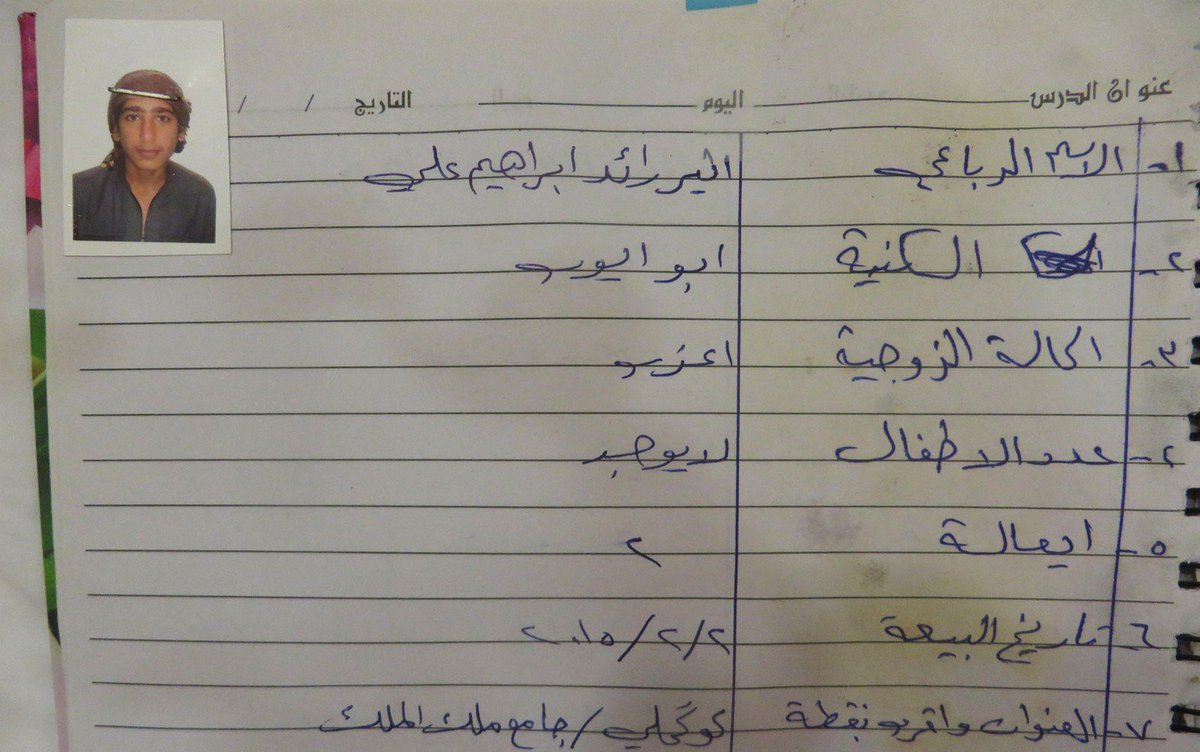 عنوان الدرس اليوم التاريخ / /
١- الاسم الرباعي رائد ابراهيم علي
٢- الكنية ابو ايوب
٣- الحالة الزوجية اعزب
٤- عدد الاطفال لا يوجد
٥- ايعالة ٢
٦- تاريخ البيعة ٢/٢/٢٠١٥
٧- العنوان واقرب نقطة كوكجلي / جامع ملك الملك